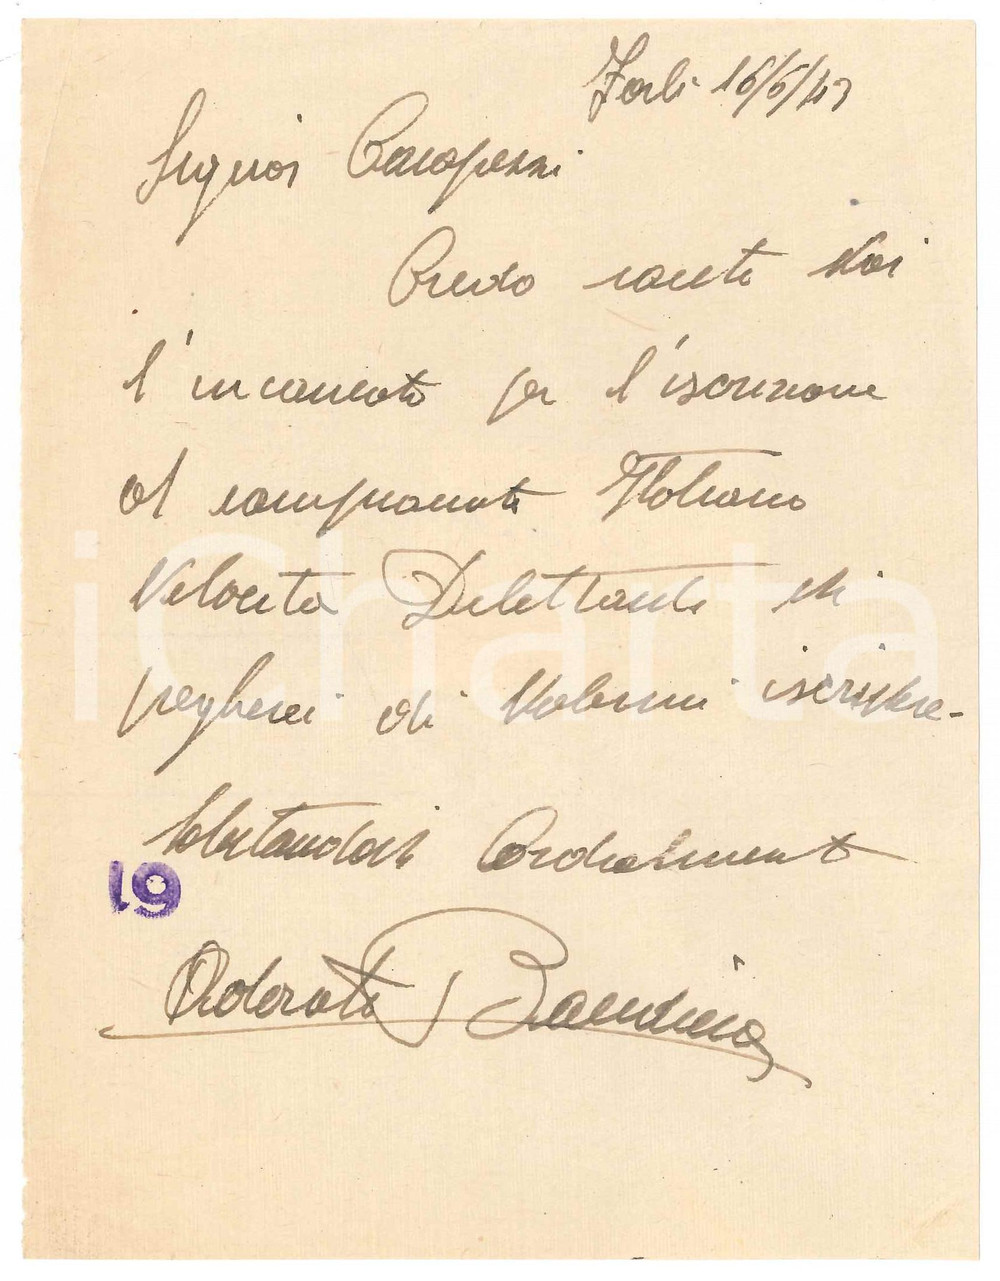 Forlì 16/6/43
Signor Carapezzi
Credo siate Voi
l'incaricato per l'iscrizione
al campionato Italiano
Velocita Dilettanti vi
pregherei di Volermi iscrivere-
Salutandovi Cordialmente
19
Adorato Bandini
iCharta